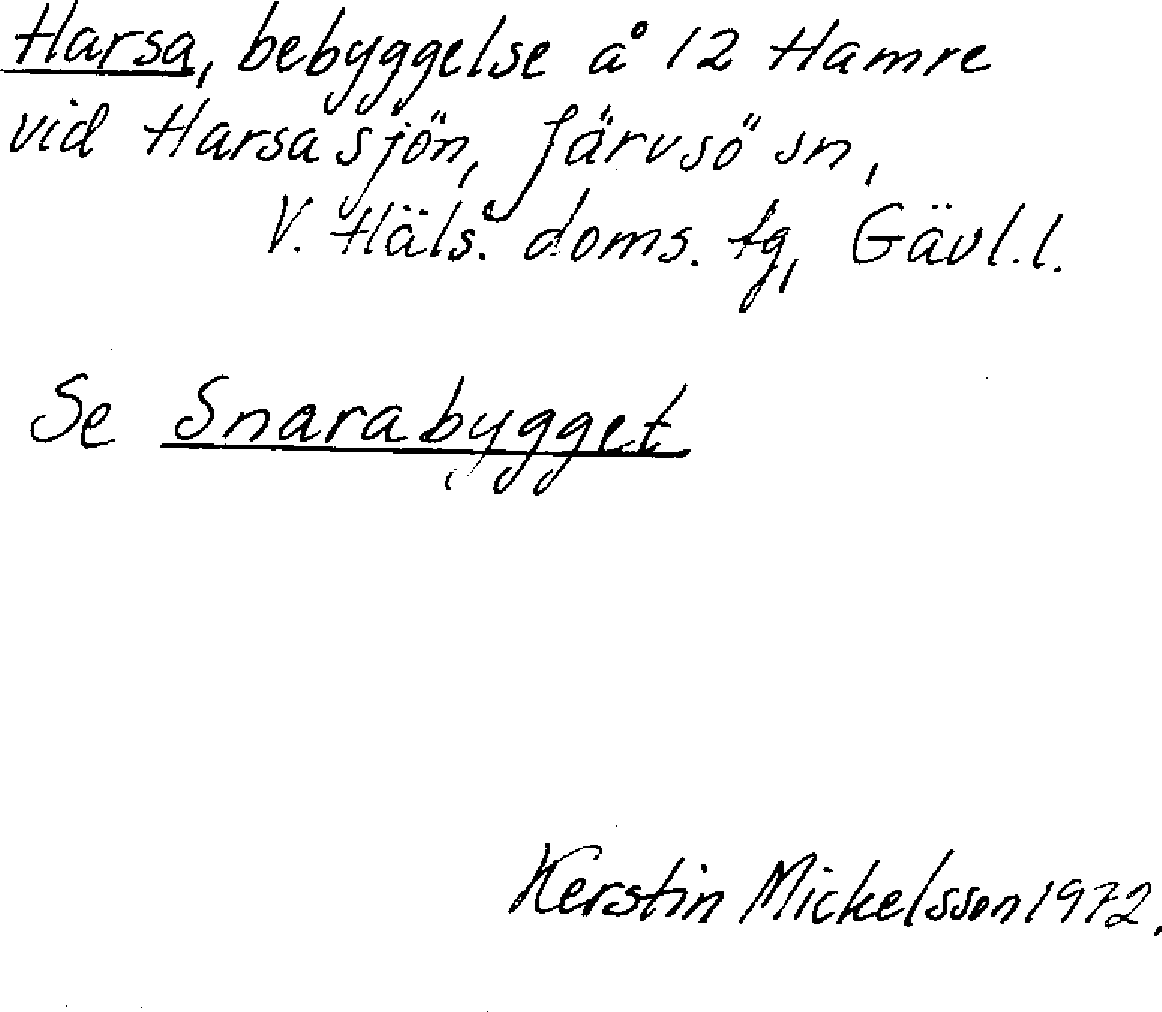 Harsa, bebyggelse å 12 Hamre
vid Harsasjön, Järvsö sn,
V. Häls. doms. tg, Gävl.l.
Se Snarabygget
Kerstin Mickelsson 1972.